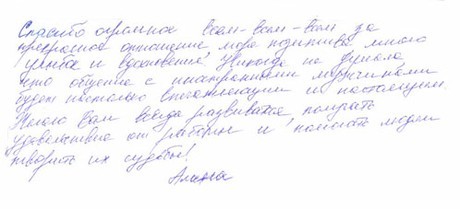 Спасибо огромное всем-всем-всем за
прекрасное отношение, море позитива, много
улыбок и вдохновения. Никогда не думала
что общение с иностранными мужчинами
будет настолько впечатляющим и настоящим.
Желаю Вам всегда развиваться, получать
удовольствие от работы и помогать людям
творить их судьбы!
Алина